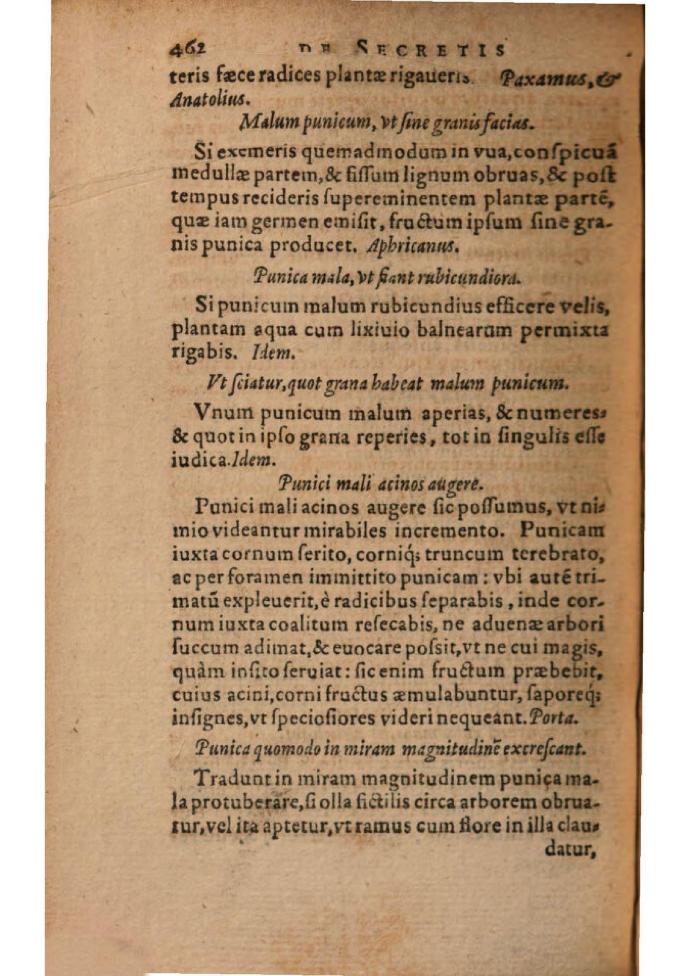 462 DE SECRETIS
teris fæce radices plantæ rigaueris. Paxamus, &
Anatolius.
Malum punicum, vt sine granis facias.
Si exemeris quemadmodum in vua, conspicuā
medullæ partem, & fissum lignum obruas, & post
tempus recideris supereminentem plantæ partē,
quæ iam germen emisit, fructum ipsum sine gra-
nis punica producet. Aphricanus.
Punica mala, vt fiant rubicundiora.
Si punicum malum rubicundius efficere velis,
plantam aqua cum lixiuio balnearum permixta
rigabis. Idem.
Vt sciatur, quot grana habeat malum punicum.
Vnum punicum malum aperias, & numeres:
& quot in ipso grana reperies, tot in singulis esse
iudica. Idem.
Punici mali acinos augere.
Punici mali acinos augere sic possumus, vt ni-
mio videantur mirabiles incremento. Punicam
iuxta cornum serito, corniq; truncum terebrato,
ac per foramen immittito punicam: vbi autē tri-
matū expleuerit, è radicibus separabis, inde cor-
num iuxta coalitum resecabis, ne aduenæ arbori
succum adimat, & euocare possit, vt ne cui magis,
quàm insito seruiat: sic enim fructum præbebit,
cuius acini, corni fructus æmulabuntur, saporeq;
insignes, vt speciosiores videri nequeant. Porta.
Punica quomodo in miram magnitudinē excrescant.
Tradunt in miram magnitudinem punica ma-
la protuberare, si olla fictilis circa arborem obrua-
tur, vel ita aptetur, vt ramus cum flore in illa clau-
datur,